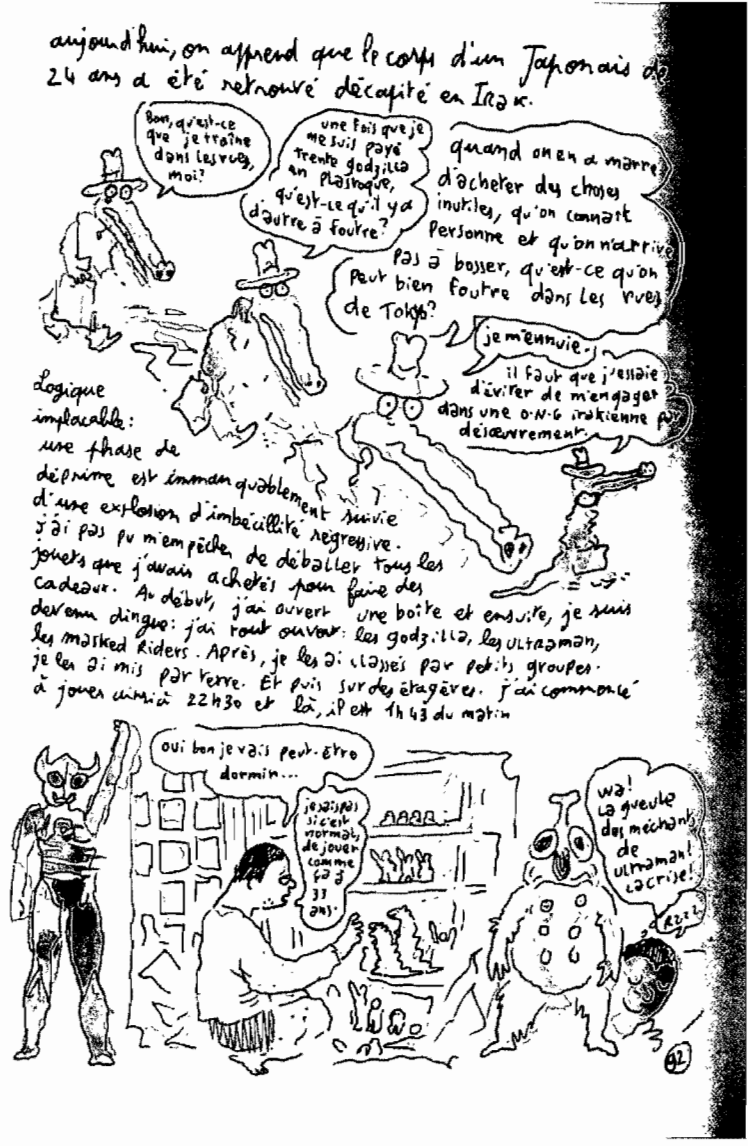 aujourd'hui, on apprend que le corps d'un Japonais de
24 ans a été retrouvé décapité en Irak.
Bon, qu'est-ce
que je traîne
dans les rues,
moi?
une fois que je
me suis payé
trente godzilla
en plastoque,
qu'est-ce qu'il y a
d'autre à foutre?
quand on en a marre
d'acheter des choses
inutiles, qu'on connaît
personne et qu'on n'arrive
pas à bosser, qu'est-ce qu'on
peut bien foutre dans les rues
de Tokyo?
je m'ennuie.
il faut que j'essaie
d'éviter de m'engager
dans une O.N.G irakienne par
désœuvrement.
Logique
implacable:
une phase de
déprime est immanquablement suivie
d'une explosion d'imbécillité régressive.
j'ai pas pu m'empêcher de déballer tous les
jouets que j'avais achetés pour faire des
cadeaux. Au début, j'ai ouvert une boîte et ensuite, je suis
devenu dingue: j'ai tout ouvert: les godzilla, les ULTRAMAN,
les masked Riders. Après, je les ai classés par petits groupes.
je les ai mis par terre. Et puis sur des étagères. j'ai commencé
à jouer ainsi à 22h30 et là, il est 1h43 du matin
oui bon je vais peut-être
dormir...
je sais pas
si c'est
normal,
de jouer
comme
ça à
33
ans.
wa!
La gueule
des méchants
de
ULTRAMAN!
La crise!
RZZZ
92